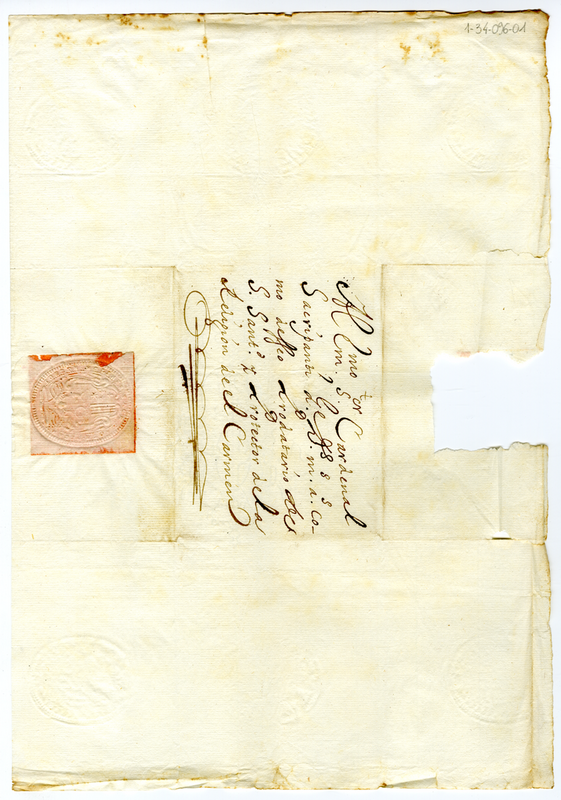 1-34-096-01
Al Em.mo S.tor Cardenal
Sacripanti q̃ G.e
m. a. co-
mo deseo Prodatario de
S. Sant.d y Protector de la
Religion de el Carmen